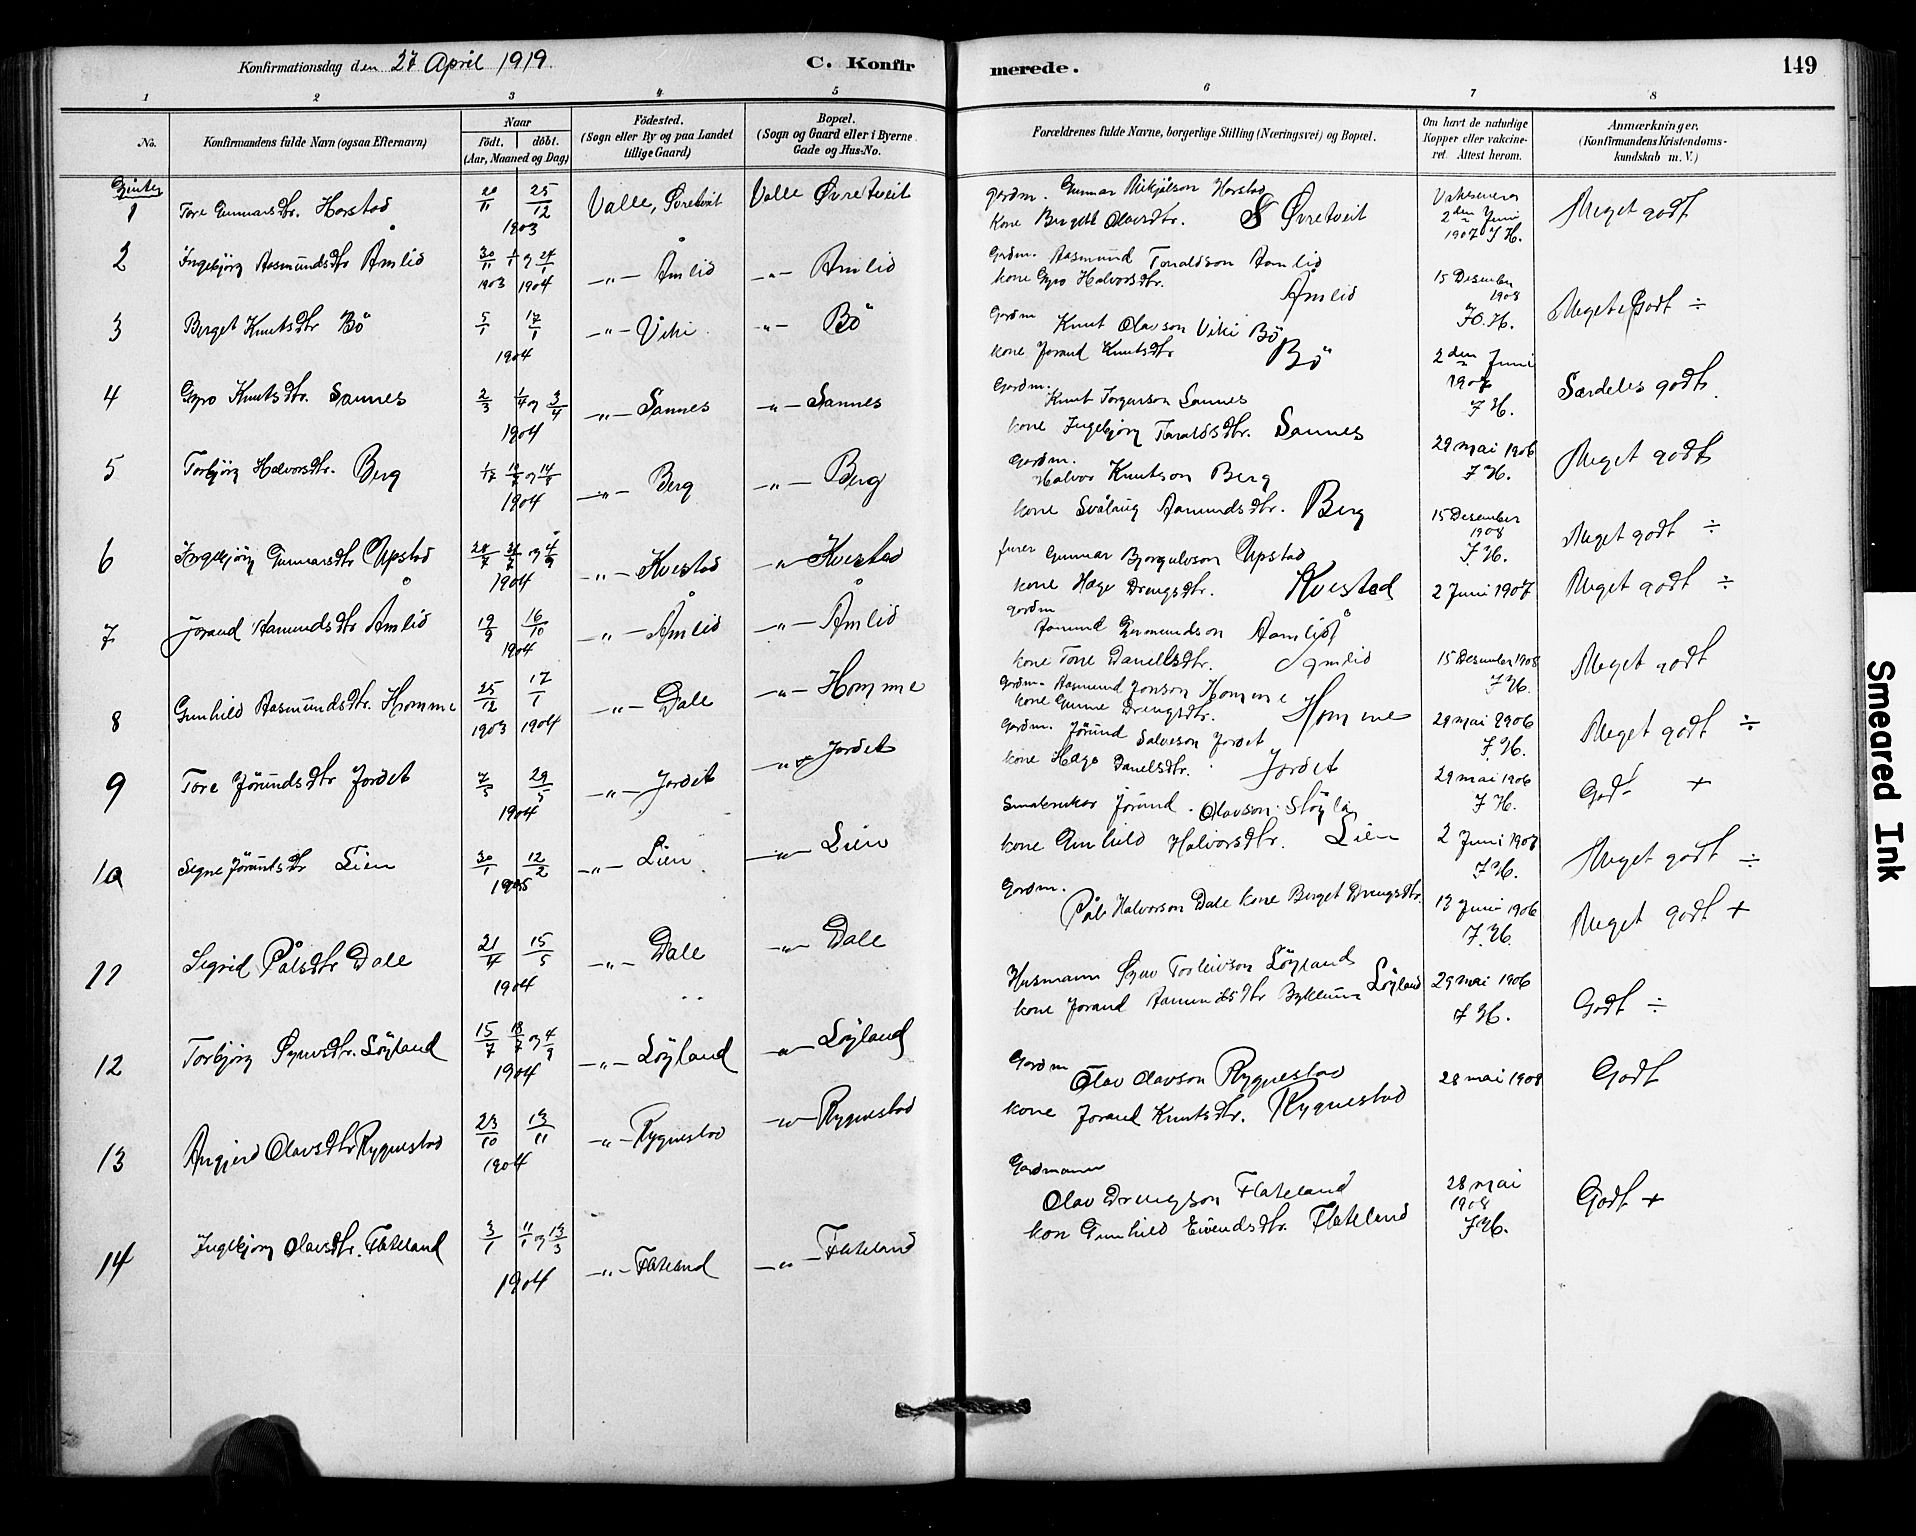 Konfirmationsdag den 27 April 1919.
C. Konfirmerede.
149
1 2 3 4 5 6 7 8
No.
Konfirmandens fulde Navn (ogsaa Efternavn)
Naar
født. døbt.
(Aar, Maaned og Dag)
Fødested.
(Sogn eller By og paa Landet
tillige Gaard)
Bopæl.
(Sogn og Gaard eller i Byerne
Gade og Hus-No.
Forældrenes fulde Navne, borgerlige Stilling (Næringsvei) og Bopæl.
Om havt de naturlige
Kopper eller vakcine-
ret. Attest herom.
Anmærkninger.
(Konfirmandens Kristendoms-
kundskab m. V.)
Gjenter
1 Tore Gunnarsdtr. Harstad 20/11 25/12 1903 Valle, Øvretveit Valle Øvretveit
Gardm. Gunnar Harstad
Kone Bergit Olavsdtr. Øvretveit
2den Juni
1907 J H.
Meget godt
2 Ingebjørg Aasmundsdtr Åmlid 30/11 1903 1904 -"- Åmlid -"- Åmlid
Gardm. Aasmund Taraldson Aamlid
kone Gyro Halvorsdtr. Åmlid
15 Desember
1908
J.H.
Meget Godt ÷
3 Berget Knutsdtr Bö 5/1 17/1 1904 -"- Viki -"- Bö
Gardm Knut Olavson Viki Bö
kone Jorand Knutsdtr Bö
2den Juni
1907
J H.
Særdeles godt.
4 Gyro Knutsdtr. Sannes 2/3 1/4 og 3/4 1904 -"- Sannes -"- Sannes
Gardm. Knut Torgarson Sannes
kone Ingebjørg Taraldsdtr. Sannes
29 mai 1906
J H.
Meget godt
5 Torbjörg Halvorsdtr. Berg 1904 -"- Berg -"- Berg
Gardm. Halvor Knutson Berg
kone Svålaug Aamundsdtr. Berg
15 Desember
1908
J. H.
Meget godt ÷
6 Ingebjörg Gunnarsdtr Upstad 1904 -"- Kvestad -"- Kvestad
Gunnar Bjorgulvson Upstad
kone Hæge Drengsdtr. Kvestad
2 Juni 1907
Meget godt ÷
7 Jorand Aamundsdtr Åmlid 19/9 16/10 1904 -"- Åmlid -"- Åmlid
Gardm Aamund Germundson Aamlid
kone Tone Danielsdtr. Åmlid
15 Desember 1908
J H.
Meget godt
8 Gunhild Aasmundsdtr. Homme 25/12 1903 17/1 1904 -"- Dale -"- Homme
Gardm. Aasmund Jonson Homme
kone Gunne Drengsdtr. Homme
29 mai 1906
J. H.
Meget godt ÷
9 Tore Jörundsdtr Jordet 7/5 29/5 1904 -"- Jordet -"- Jordet
Gardm. Jörund Salveson Jordet
kone Hæge Danielsdtr. Jordet
29 mai 1906
J H.
Godt +
10 Signe Jörundsdtr Lien 30/1 12/2 1905 -"- Lien -"- Lien
Smabruker Jörund Olavson
kone Gunhild Halvorsdtr. Lien
2 Juni 1907
J H.
Meget godt ÷
11 Sigrid Pålsdtr Dale 21/4 15/5 1904 -"- Dale -"- Dale
Gardm. Pål Halvorson Dale kone Berget Drengsdtr.
13 Juni 1906
J. H.
Meget godt +
12 Torbjörg Löyland 15/7 1904 -"- Löyland -"- Löyland
Husmann Torleivson Löyland
kone Jorand Löyland
29 mai 1906
J H.
Godt ÷
13 Angjerd Olavsdtr Rygnestad 23/10 13/11 1904 -"- Rygnestad -"- Rygnestad
Gardm Olav Olavson Rygnestad
kone Jorand Knutsdtr. Rygnestad
28 mai 1908
Godt
14 Ingebjörg Olavsdtr. Flateland 3/1 11/1 og 13/3 1904 -"- Flateland -"- Flateland
Gardmann
Olav Drengson Flateland
kon Gunhild Eivendsdtr. Flateland
28 mai
1908
J H.
Godt +
Smeared Ink